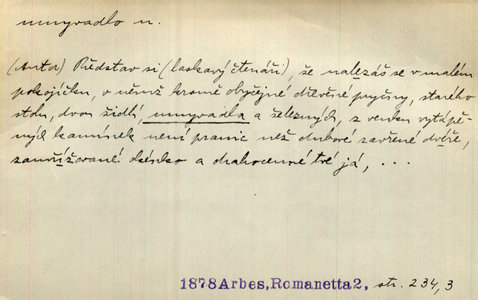 umyvadlo n.
(Autor) Představ si (laskavý čtenáři), že nalezáš se v malém
pokojíčku, v němž kromě obyčejné dřevěné pryčny, starého
stolu, dvou židlí, umyvadla a železných, z venku vytápě-
ných kamínek není pranic než dubové zavřené dvéře,
zamřížované okénko a drahocenné tvé já, ...
1878 Arbes, Romanetta 2, str. 234,3